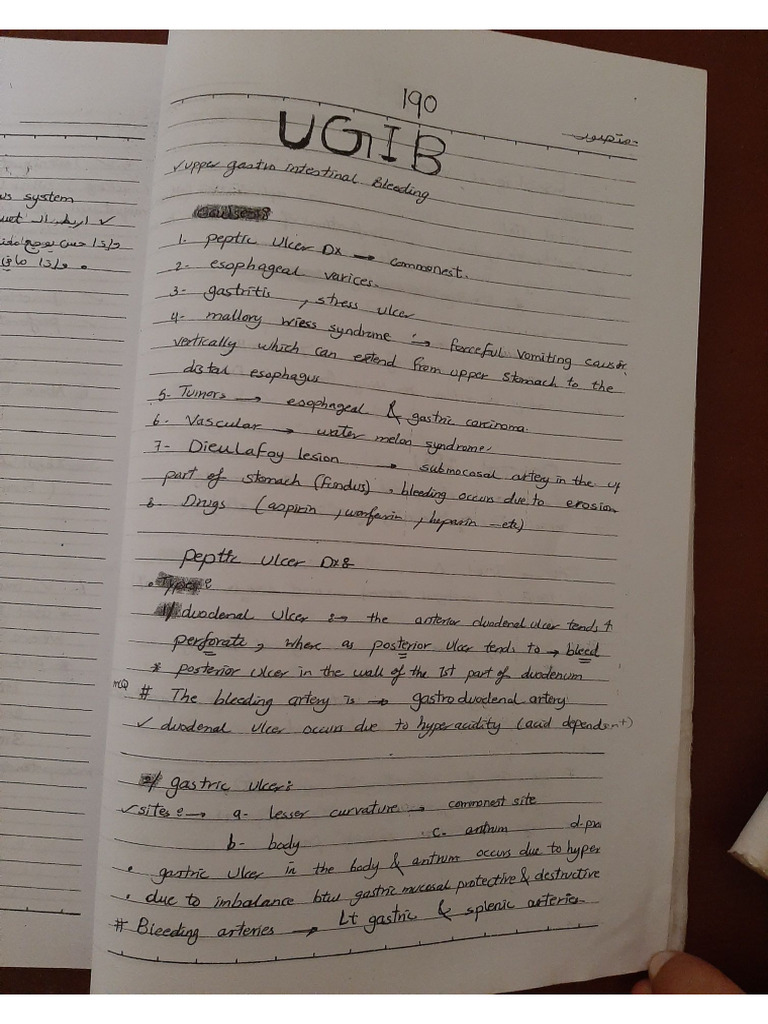 us system
✓ اربطه الـ uet
واذا حسن يوجع
واذا
190
منصور
UGIB
✓ upper gastro intestinal Bleeding
Causes:
1- peptic Ulcer Dx → commonest.
2- esophageal varices.
3- gastritis, stress ulcer
4- mallory wiess syndrome :→ forceful vomiting
vertically which can extend from upper stomach to the
distal esophagus
5- Tumors → esophageal & gastric carcinoma.
6- Vascular → water melon syndrome.
7- Dieulafoy lesion → submocosal artery in the up
part of stomach (fundus), bleeding occurs due to erosion
8- Drugs (aspirin, warfarin, heparin -etc)
peptic ulcer Dx:
• Types:
1/ duodenal ulcer :→ the anterior duodenal ulcer tends t
perforate, where as posterior ulcer tends to → bleed
* posterior ulcer in the wall of the 1st part of duodenum
MCQ # The bleeding artery is → gastroduodenal artery
✓ duodenal ulcer occurs due to hyperacidity (acid dependent)
2/ gastric ulcer:
✓ sites :→ a- lesser curvature → commonest site
b- body c- antrum d- pre
• gastric ulcer in the body & antrum occurs due to hyper
• due to imbalance btw gastric mucosal protective & destructive
# Bleeding arteries → Lt gastric & splenic arteries